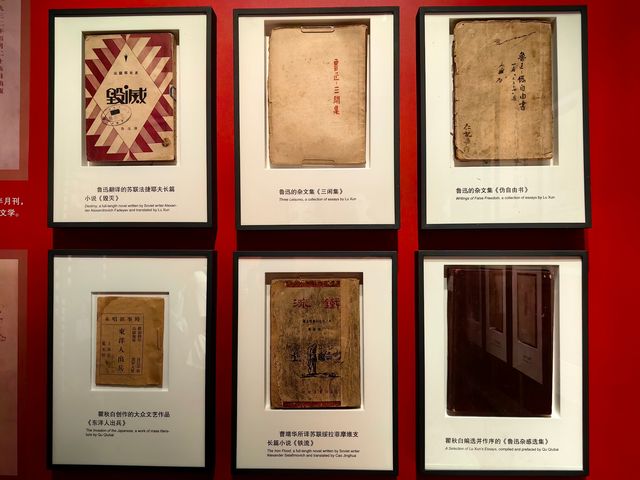 半月刊，
文学。
毁灭
鲁迅翻译的苏联法捷耶夫长篇
小说《毁灭》
Destroy, a full-length novel written by Soviet writer Alexan-
der Alexandrovich Fadeyev and translated by Lu Xun
鲁迅：三閒集
鲁迅的杂文集《三闲集》
Three Leisures, a collection of essays by Lu Xun
鲁迅的杂文集《伪自由书》
Writings of False Freedom, a collection of essays by Lu Xun
東洋人出兵
瞿秋白创作的大众文艺作品
《东洋人出兵》
The Invasion of the Japanese, a work of mass litera-
ture by Qu Qiubai
流鐵
曹靖华所译苏联绥拉菲摩维支
长篇小说《铁流》
The Iron Flood, a full-length novel written by Soviet writer
Alexander Serafimovich and translated by Cao Jinghua
瞿秋白编选并作序的《鲁迅杂感选集》
A Selection of Lu Xun's Essays, compiled and prefaced by Qu Qiubai